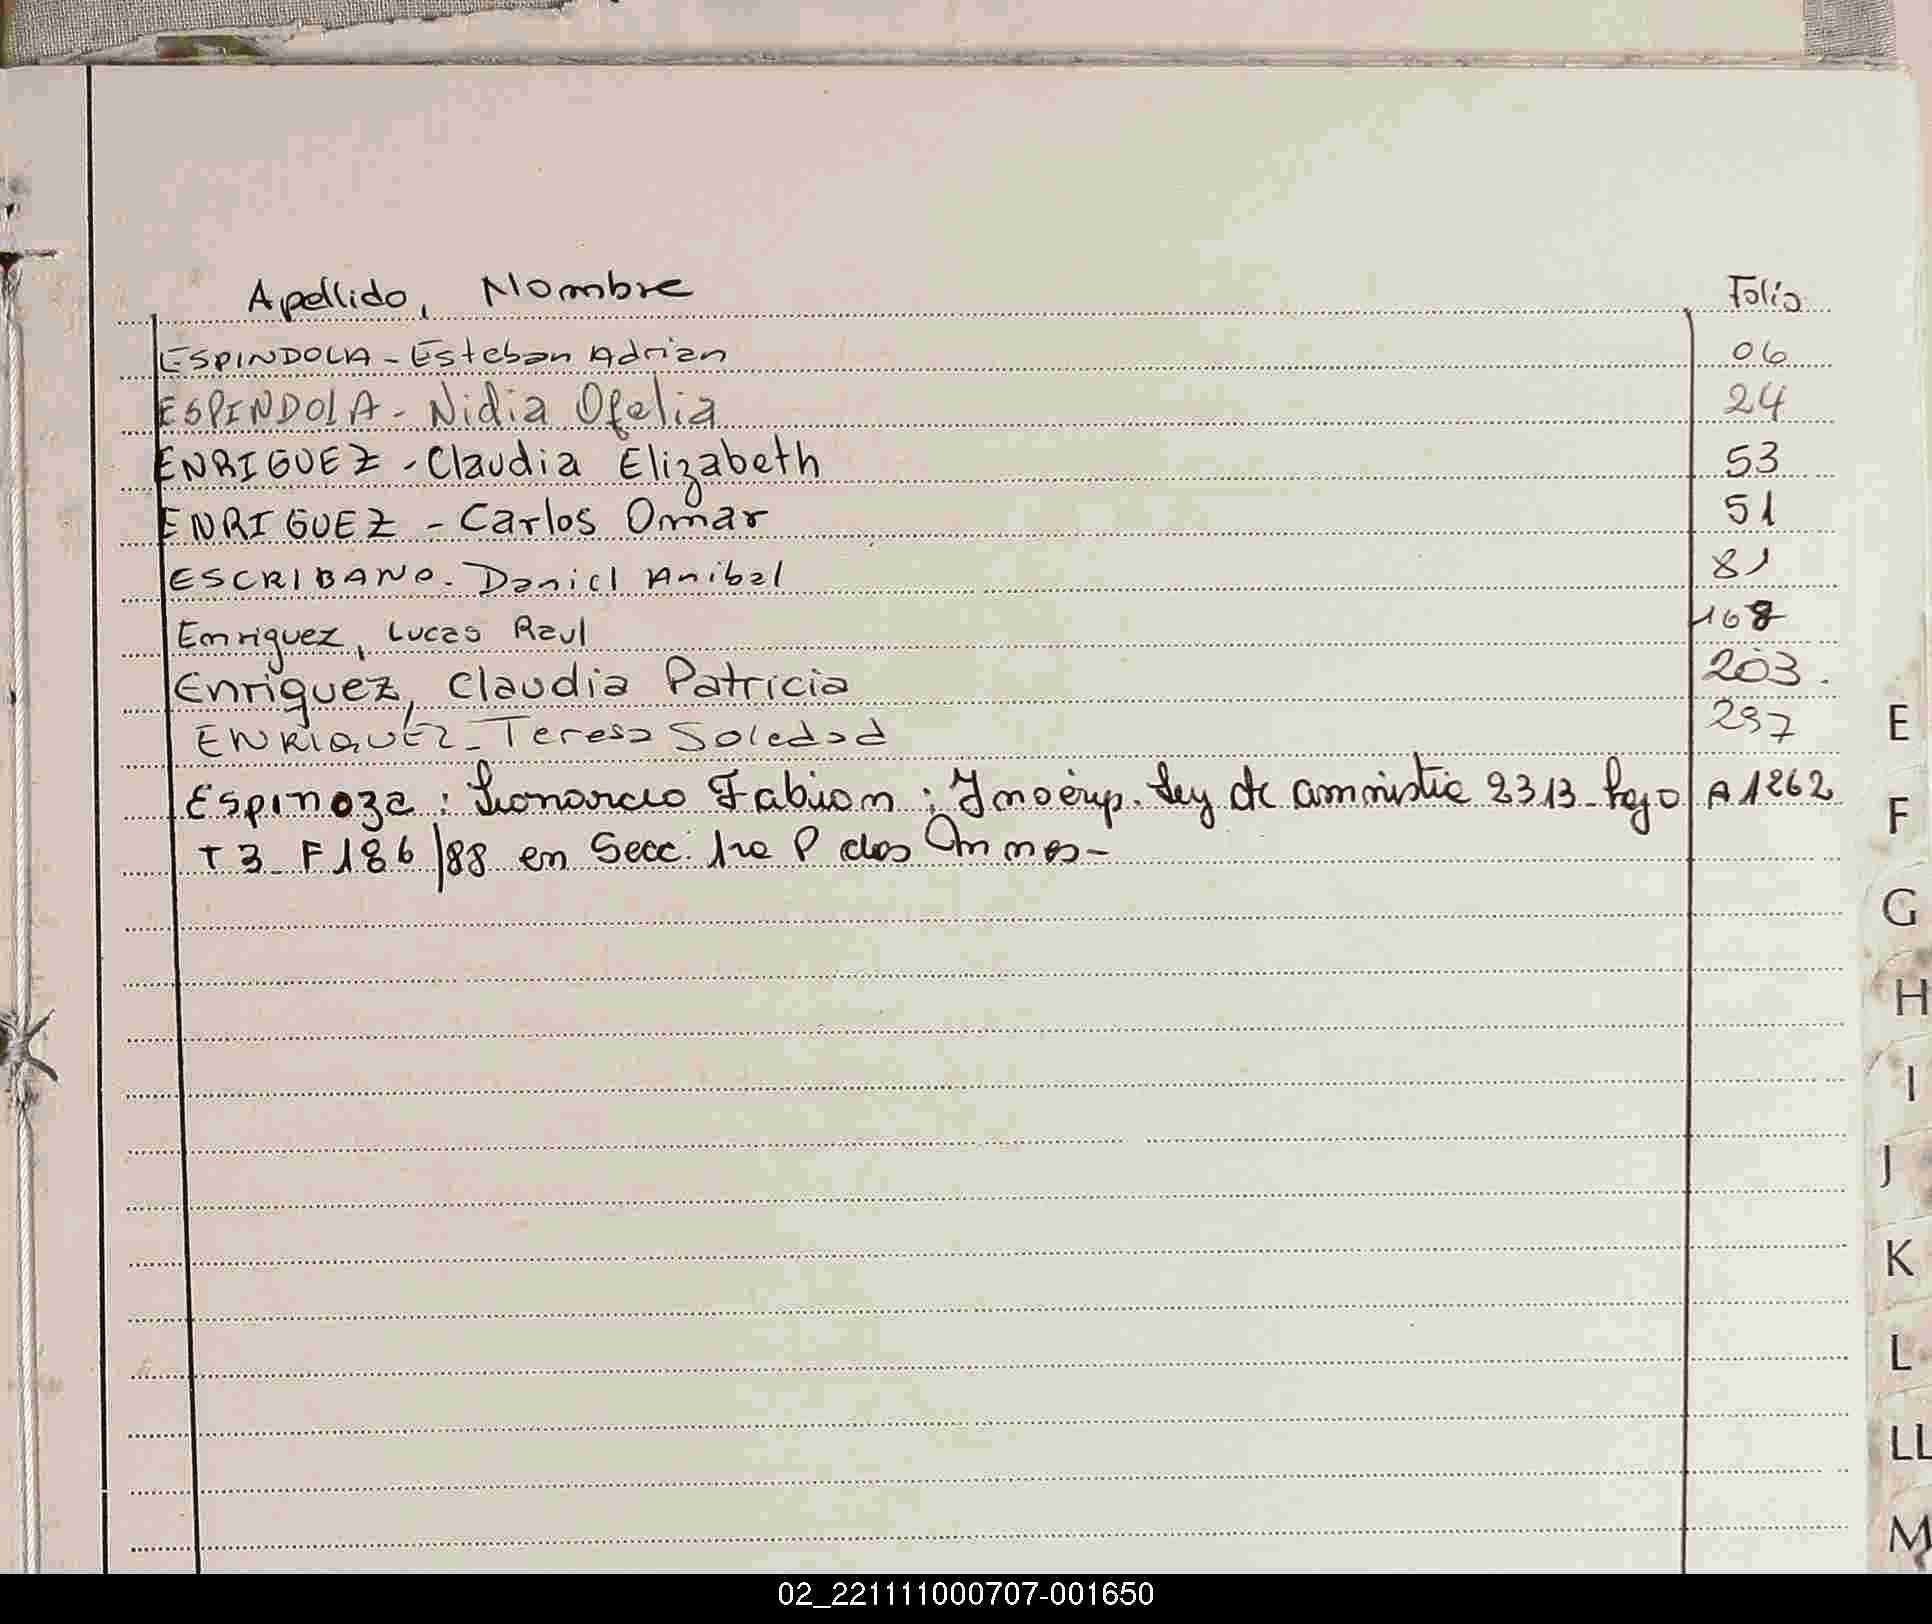 Apellido, Nombre Folio
ESPINDOLA - Esteban Adrian 06
ESPINDOLA - Nidia Ofelia 24
ENRIGUEZ - Claudia Elizabeth 53
ENRIGUEZ - Carlos Omar 51
ESCRIBANO - Daniel Anibal 81
Enriguez, Lucas Raul 168
Enriquez, Claudia Patricia 203.
ENRIQUEZ - Teresa Soledad 237
Espinoza : Leonardo Fabian ; Ley de amnistia 2313 - bajo A1262
T 3 F 186/88 en Secc. 1ra P dos
E
F
G
H
I
J
K
L
LL
M
02_221111000707-001650